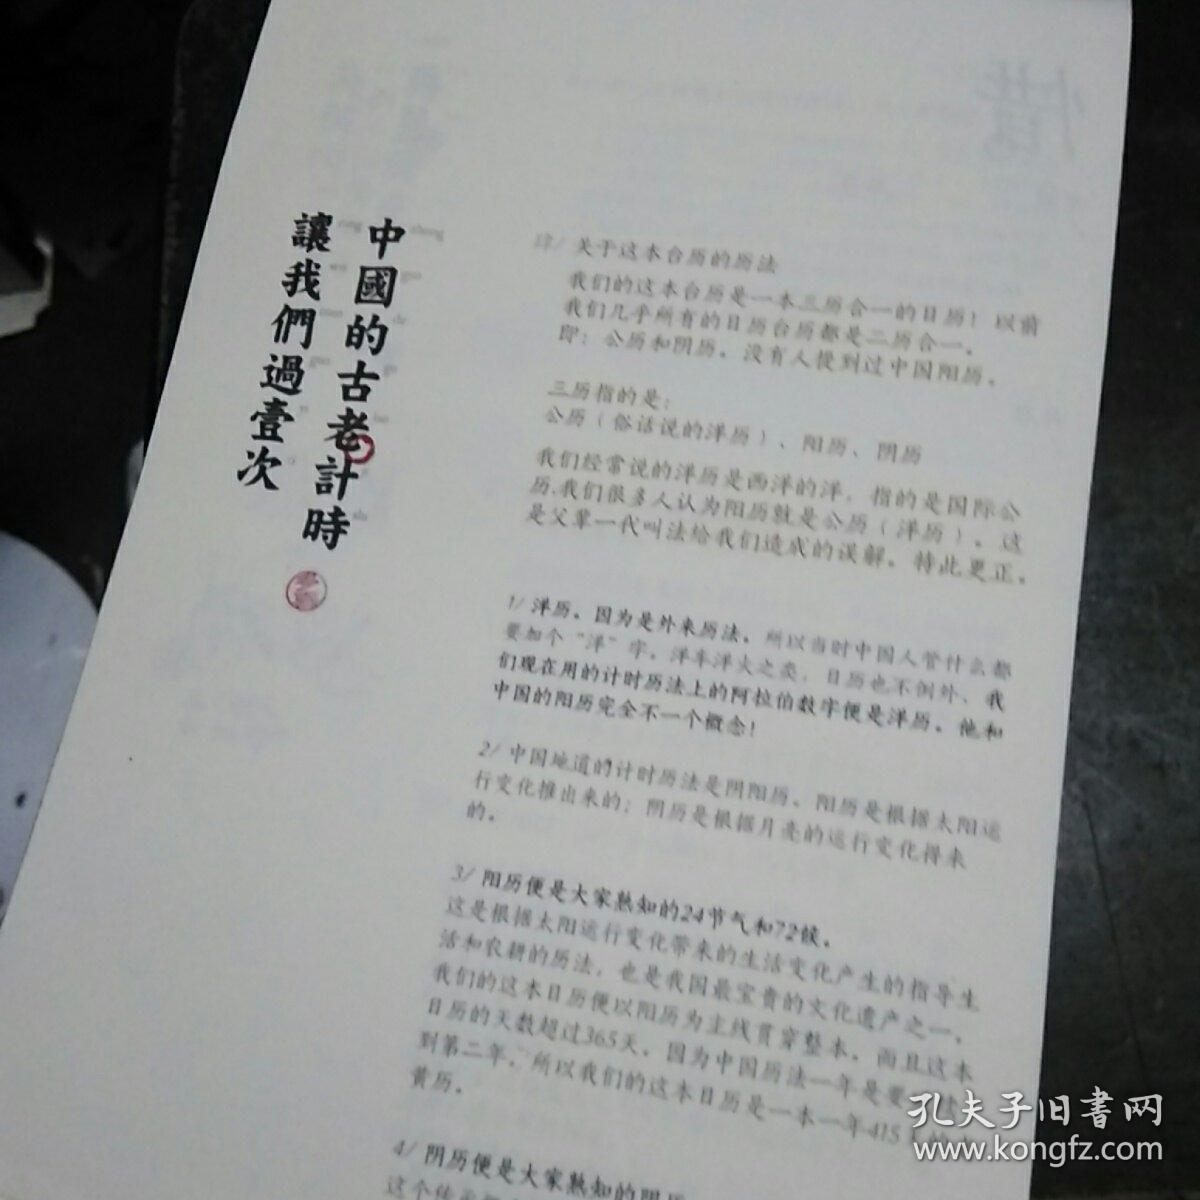 中國的古老計時
讓我們過壹次
肆/ 关于这本台历的历法
我们的这本台历是一本三历合一的日历！以前
我们几乎所有的日历台历都是二历合一，
即：公历和阴历，没有人提到过中国阳历。
三历指的是：
公历（俗话说的洋历）、阳历、阴历
我们经常说的洋历是西洋的洋，指的是国际公
历，我们很多人认为阳历就是公历（洋历）。这
是父辈一代叫法给我们造成的误解。特此更正。
1/ 洋历。因为是外来历法，所以当时中国人管什么都
要加个“洋”字，洋车洋火之类，日历也不例外、我
们现在用的计时历法上的阿拉伯数字便是洋历。他和
中国的阳历完全不一个概念！
2/ 中国地道的计时历法是阴阳历、阳历是根据太阳运
行变化推出来的；阴历是根据月亮的运行变化得来
的。
3/ 阳历便是大家熟知的24节气和72候。
这是根据太阳运行变化带来的生活变化产生的指导生
活和农耕的历法，也是我国最宝贵的文化遗产之一。
我们的这本日历便以阳历为主线贯穿整本。而且这本
日历的天数超过365天。因为中国历法一年是要
到第二年，所以我们的这本日历是一本一年415
黄历。
4/ 阴历便是大家熟知的阴历
孔夫子旧書网
www.kongfz.com